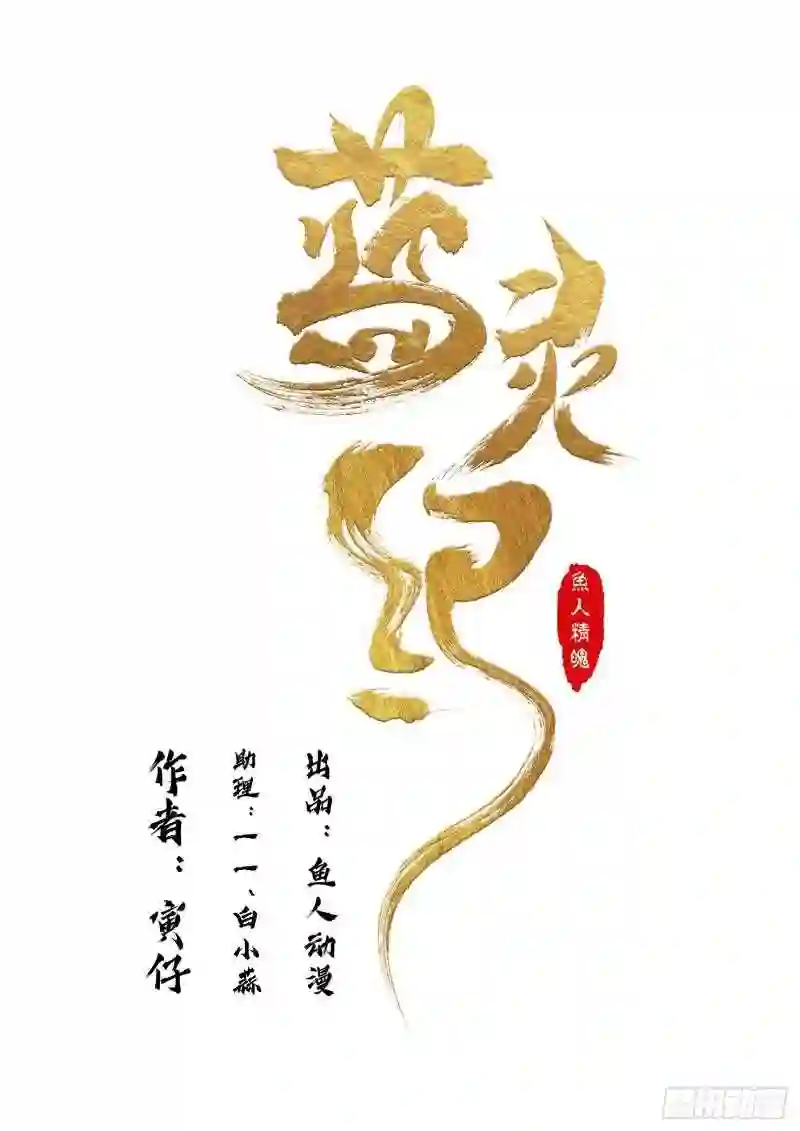 蓝灵纪
魚人精魄
出品：鱼人动漫
助理：一一、白小蒜
作者：寅仔